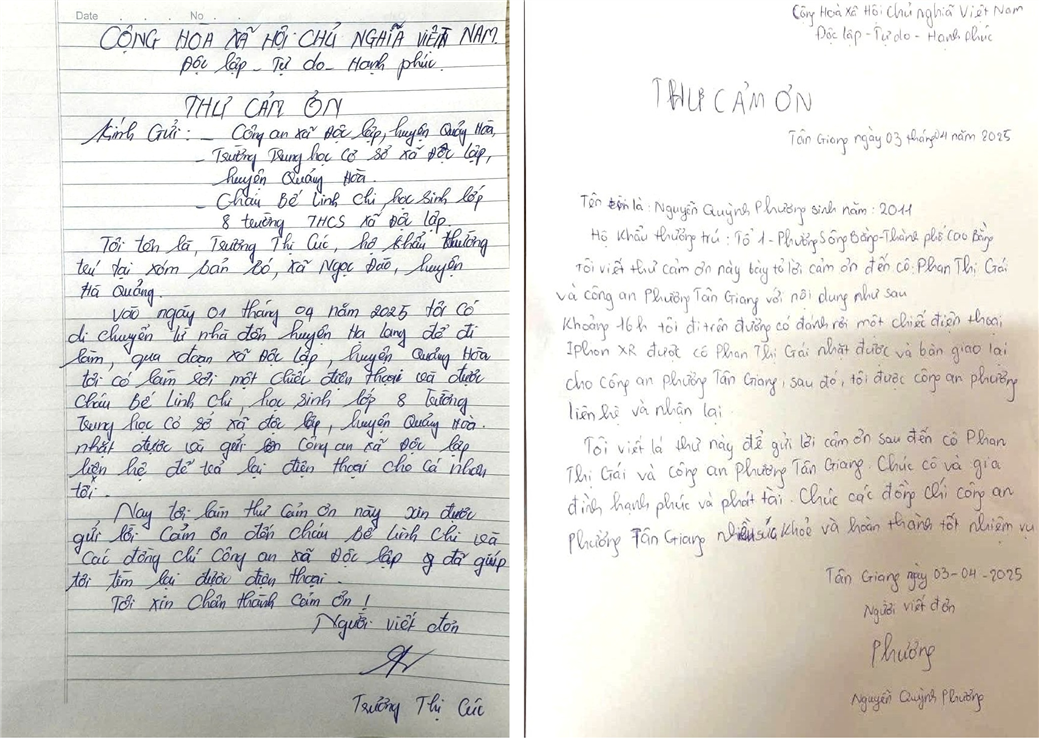 Date No
CỘNG HÒA XÃ HỘI CHỦ NGHĨA VIỆT NAM.
Độc lập - Tự do - Hạnh phúc.
THƯ CẢM ƠN
Kính Gửi: - Công an xã Độc lập, huyện Quảng Hòa,
- Trường Trung học cơ sở xã Độc lập,
huyện Quảng Hòa.
- Cháu Bế Linh Chi, học sinh lớp
8 trường THCS xã Độc lập.
Tôi tên là, Trương Thị Cúc, hộ khẩu thường
trú tại xóm bản bó, xã Ngọc Đào, huyện
Hà Quảng.
Vào ngày 01 tháng 04 năm 2025 tôi có
di chuyển từ nhà đến huyện Hạ lang để đi
làm, qua đoạn xã Độc lập, huyện Quảng Hòa
tôi có làm rơi một chiếc điện thoại và được
cháu Bế Linh Chi, học sinh lớp 8 trường
trung học cơ sở xã độc lập, huyện Quảng Hoà.
nhặt được và gửi Công an xã Độc lập
liên hệ để trả lại điện thoại cho cá nhân
tôi.
Nay tôi làm thư cảm ơn này xin được
gửi lời cảm ơn đến cháu Bế Linh Chi và
các đồng chí công an xã Độc lập đã giúp
tôi tìm lại được điện thoại.
Tôi xin chân thành cảm ơn!
Người viết đơn
Trương Thị Cúc
Cộng Hoà Xã Hội Chủ nghĩa Việt Nam
Độc lập - Tự do - Hạnh phúc
THƯ CẢM ƠN
Tân Giang ngày 03 tháng 04 năm 2025
Tên là: Nguyễn Quỳnh Phương sinh năm: 2011
Hộ Khẩu thường trú: Tổ 1 - Phường Sông Bằng - Thành phố Cao Bằng
Tôi viết thư cảm ơn này bày tỏ lời cảm ơn đến cô: Phan Thị Gái
và công an Phường Tân Giang với nội dung như sau
Khoảng 16h tôi đi trên đường có đánh rơi một chiếc điện thoại
IPhon XR được cô Phan Thị Gái nhặt được và bàn giao lại
cho công an phường Tân Giang, sau đó, tôi được công an phường
liên hệ và nhận lại.
Tôi viết lá thư này để gửi lời cảm ơn sau đến cô Phan
Thị Gái và công an Phường Tân Giang. Chúc cô và gia
đình hạnh phúc và phát tài. Chúc các đồng chí công an
Phường Tân Giang nhiều sức khoẻ và hoàn thành tốt nhiệm vụ
Tân Giang ngày 03-04-2025
Người viết đơn
Phương
Nguyễn Quỳnh Phương